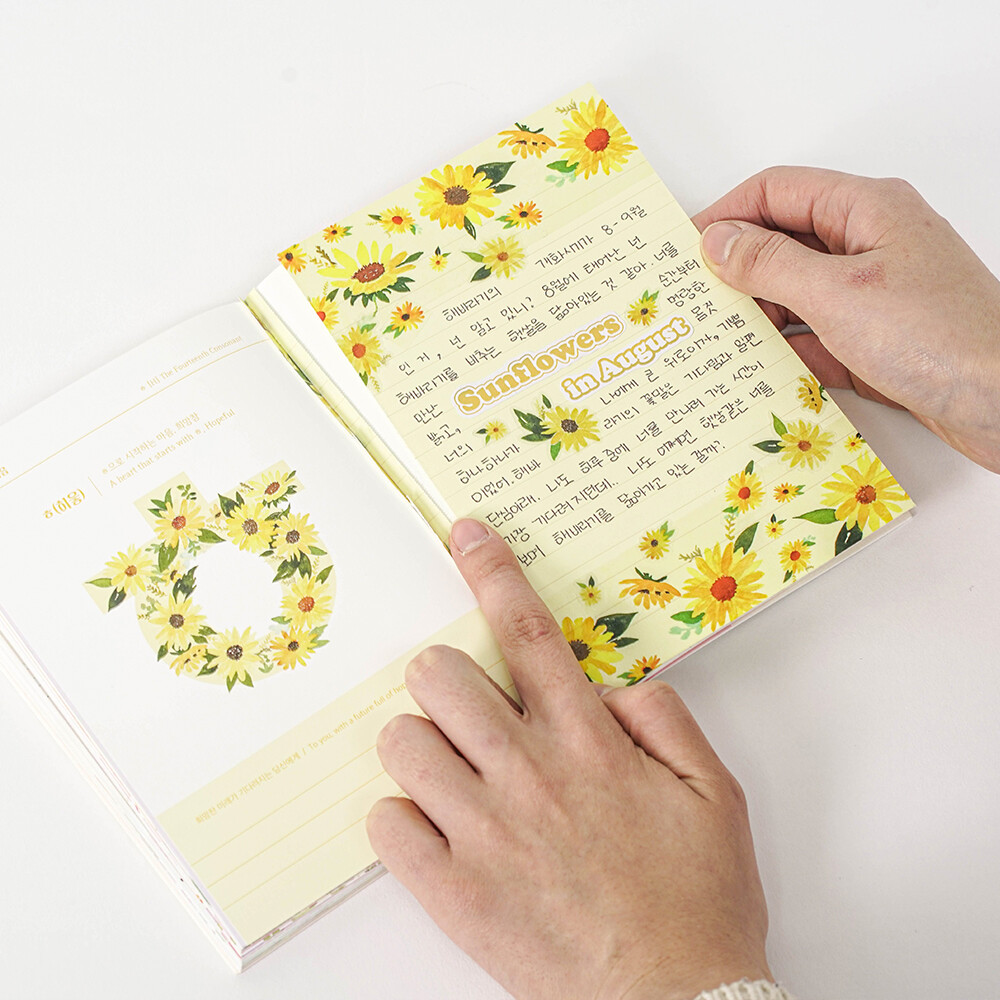 ㅎ [H] The Fourteenth Consonant
ㅎ으로 시작하는 마음, 희망찬
A heart that starts with ㅎ, Hopeful
ㅎ(히읗)
희망찬 미래가 기다려지는 당신에게 / To you, with a future full of hope
해바라기의 개화시기가 8-9월
인 거, 넌 알고 있니? 8월에 태어난 넌
해바라기를 비추는 햇살을 닮아있는 것 같아. 너를
만난 순간부터
밝고, 명랑한
너의 몸짓
Sunflowers
in August
하나하나가 나에게 큰 위로이자, 기쁨
이었어. 해바라기의 꽃말은 기다림과 일편
단심이래. 나도 하루 중에 너를 만나러 가는 시간이
가장 기다려지던데.. 나도 어쩌면 햇살같은 너를
보며 해바라기를 닮아가고 있는 걸까?